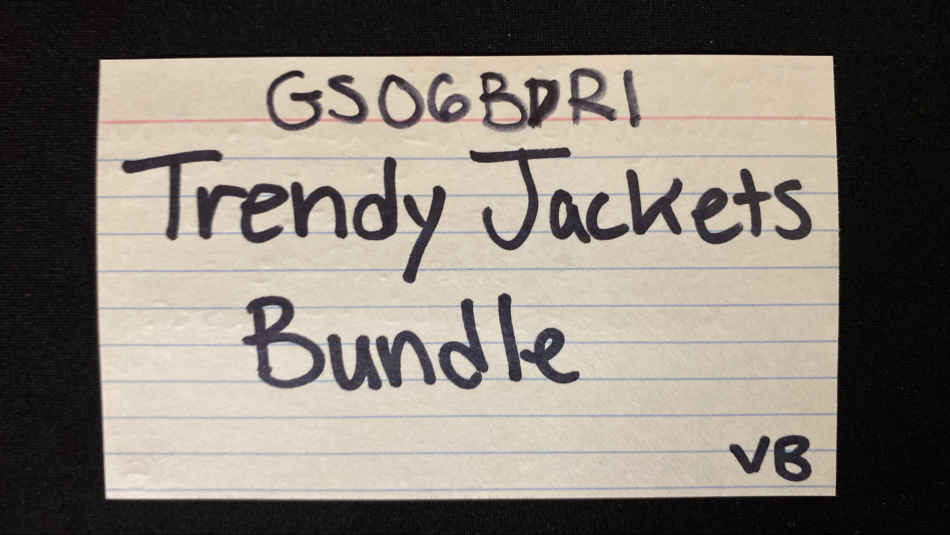 GS06BDR1
Trendy Jackets
Bundle
VB